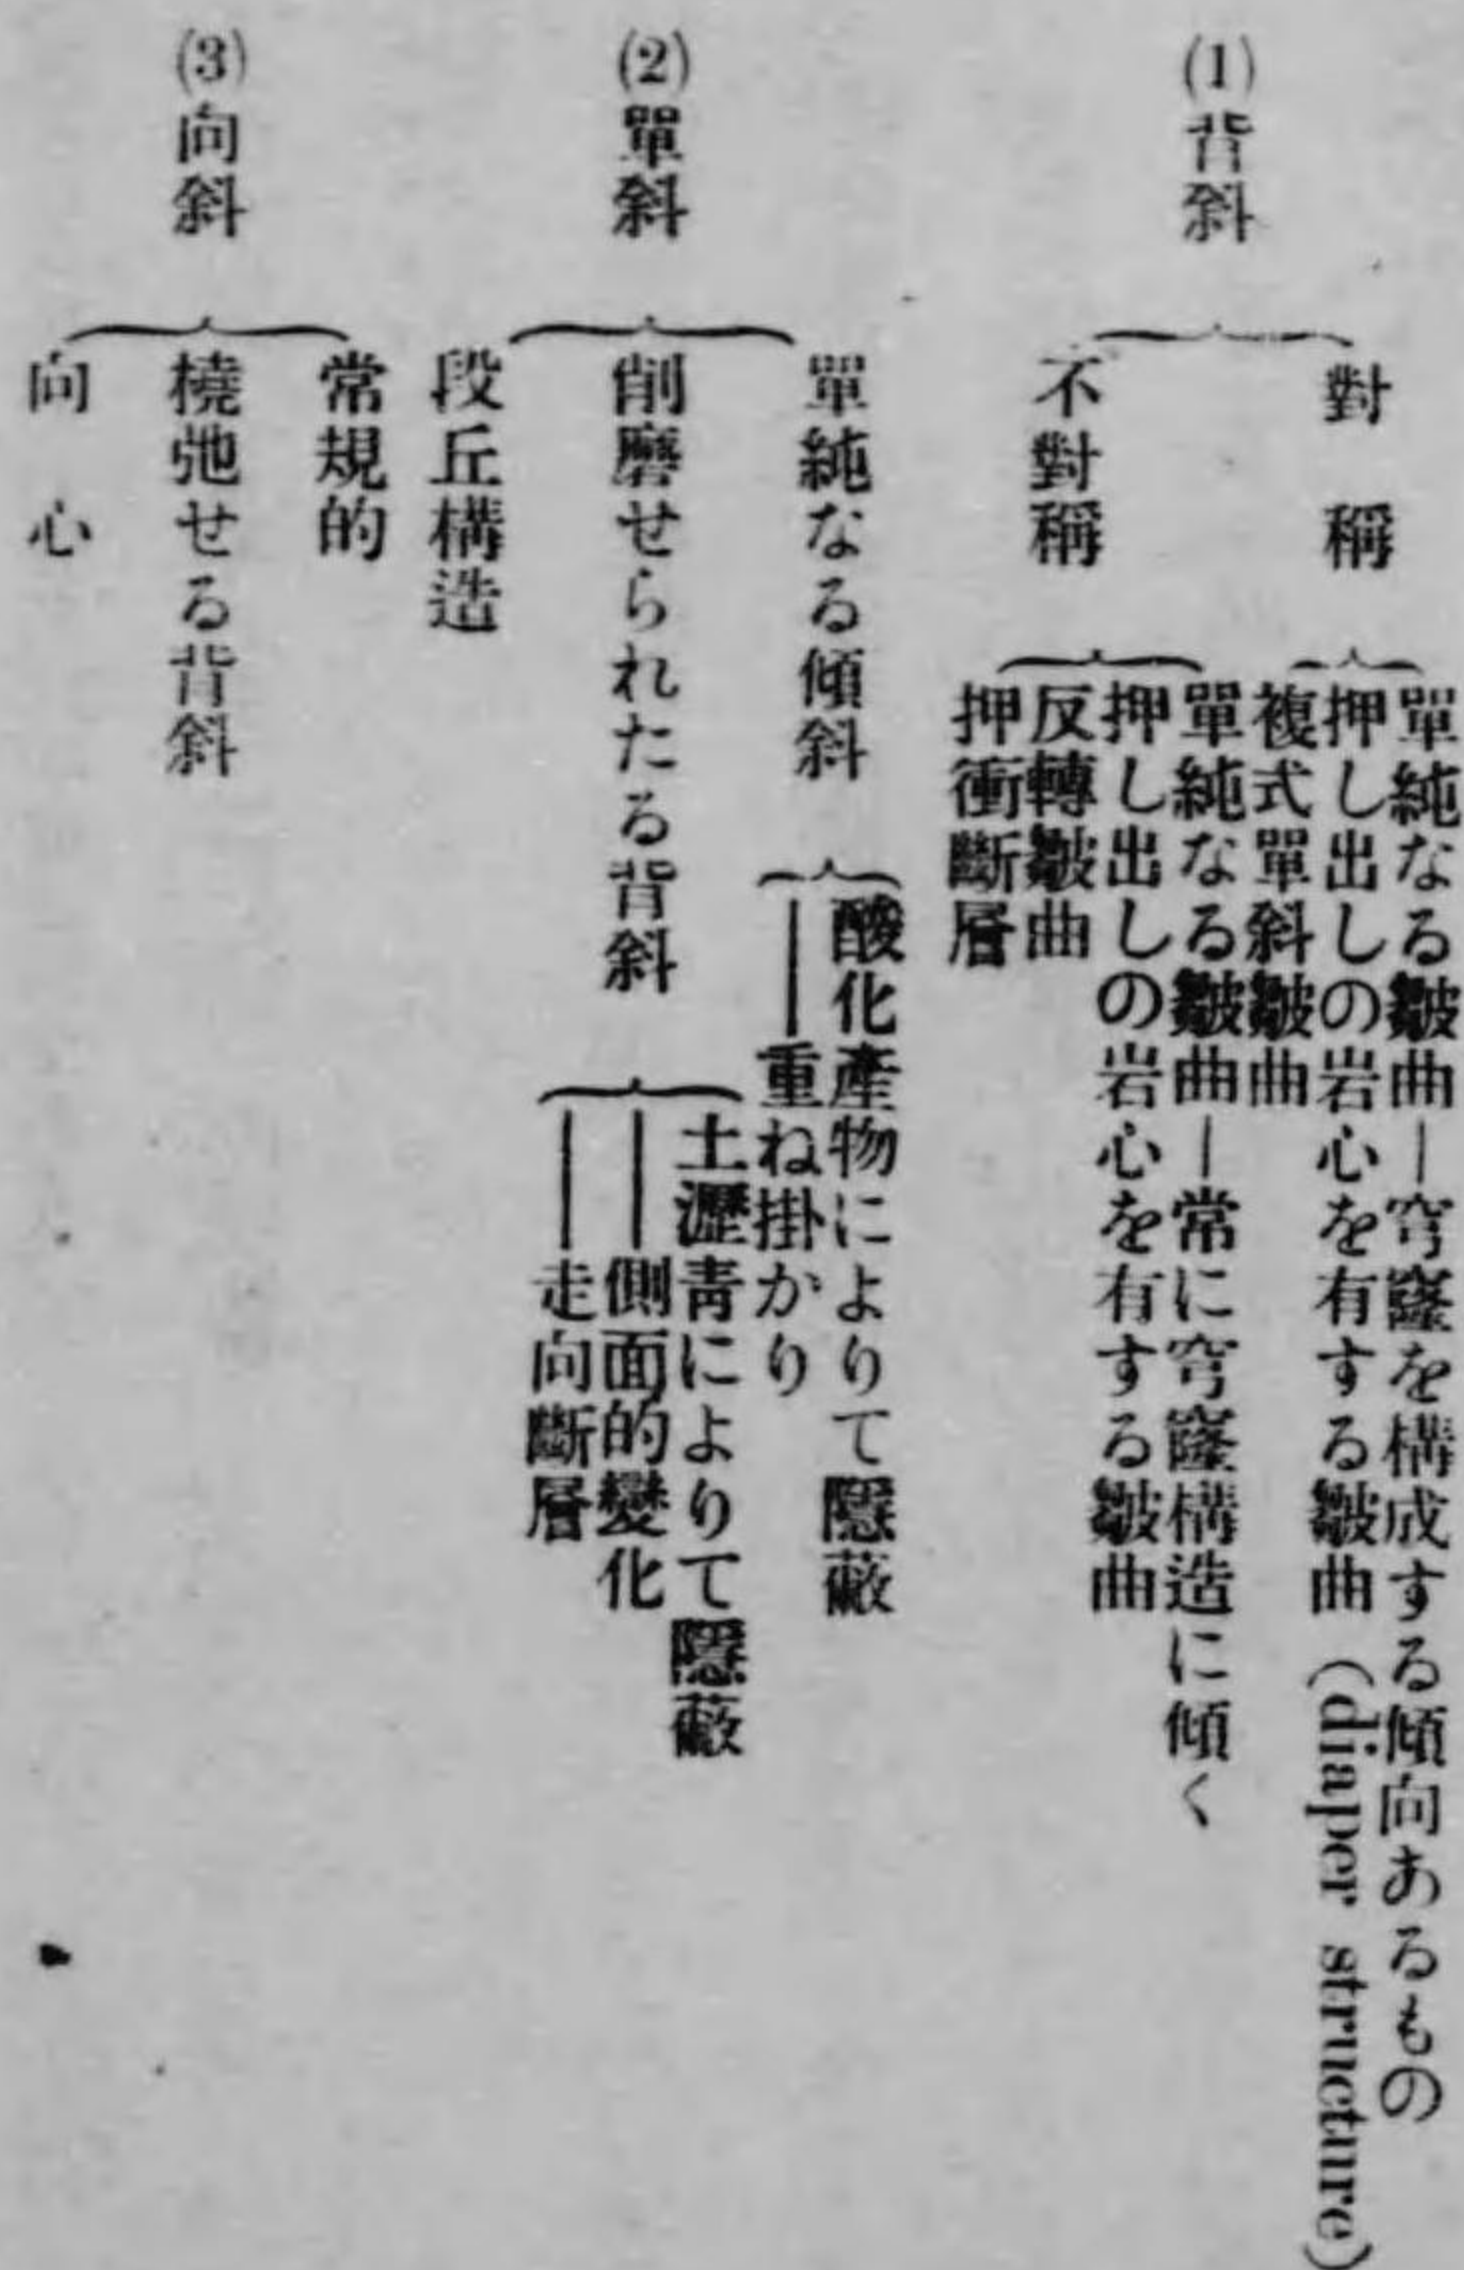 (1)背斜
對稱
單純なる皺曲―穹窿を構成する傾向あるもの
押し出しの岩心を有する皺曲 (diaper structure)
複式單斜皺曲
不對稱
單純なる皺曲―常に穹窿構造に傾く
押し出しの岩心を有する皺曲
反轉皺曲
押衝斷層
(2)單斜
單純なる傾斜
酸化產物によりて隱蔽
――重ね掛かり
削磨せられたる背斜
土瀝靑によりて隱蔽
――側面的變化
――走向斷層
段丘構造
(3)向斜
常規的
橈弛せる背斜
向心